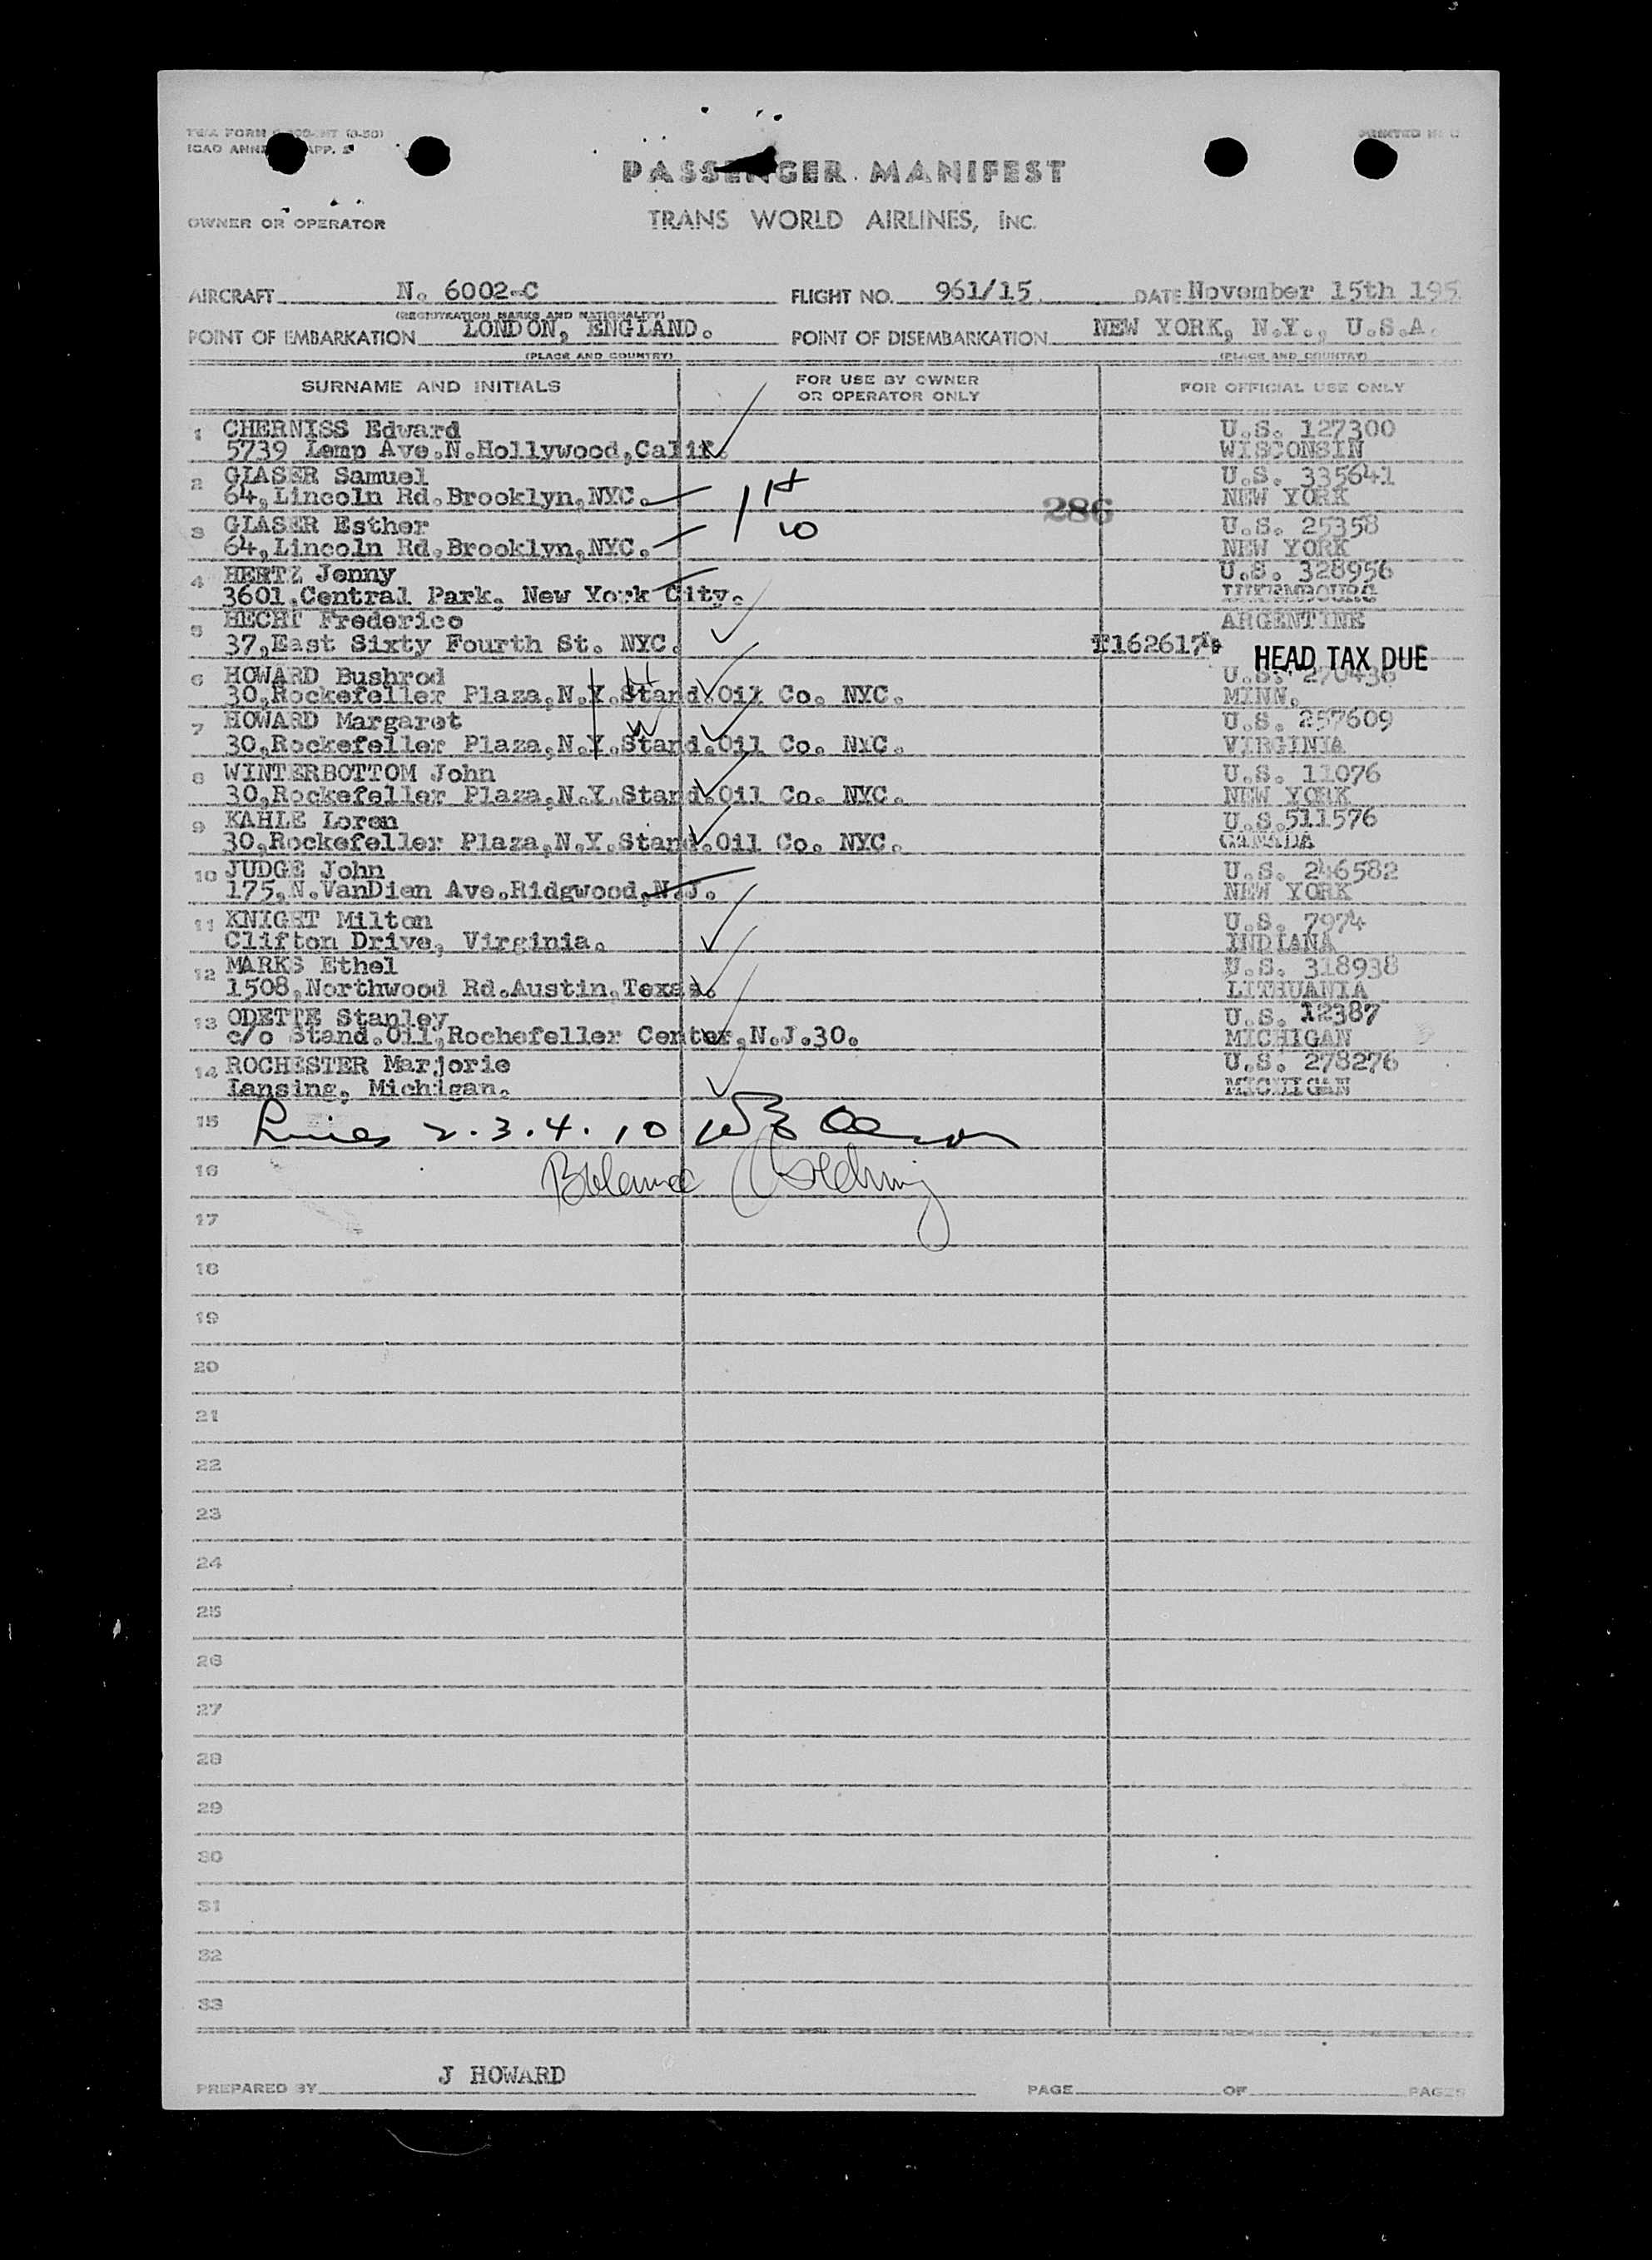 TWA FORM
ICAO ANNE APP.
PRINTED IN U
PASSENGER MANIFEST
OWNER OR OPERATOR
TRANS WORLD AIRLINES, INC.
AIRCRAFT N. 6002-C FLIGHT NO. 961/15 DATE November 15th 195
(REGISTRATION MARKS AND NATIONALITY)
POINT OF EMBARKATION LONDON, ENGLAND. POINT OF DISEMBARKATION NEW YORK, N.Y., U.S.A.
(PLACE AND COUNTRY) (PLACE AND COUNTRY)
SURNAME AND INITIALS FOR USE BY OWNER OR OPERATOR ONLY FOR OFFICIAL USE ONLY
1 CHERNISS Edward U.S. 127300
5739 Lemp Ave.N.Hollywood,Calif. WISCONSIN
2 GLASER Samuel U.S. 335641
64,Lincoln Rd.Brooklyn,NYC. H NEW YORK
286
3 GLASER Esther U.S. 25358
64,Lincoln Rd.Brooklyn,NYC. W NEW YORK
4 HERTZ Jenny U.S. 328956
3601,Central Park. New York City. LUXEMBOURG
5 HECHT Frederico ARGENTINE
37,East Sixty Fourth St. NYC. HEAD TAX DUE
6 HOWARD Bushrod U.S. 270436
30,Rockefeller Plaza,N.Y.Stand.Oil Co. NYC. H MINN.
7 HOWARD Margaret U.S. 257609
30,Rockefeller Plaza,N.Y.Stand.Oil Co. NYC. W VIRGINIA
8 WINTERBOTTOM John U.S. 11076
30,Rockefeller Plaza,N.Y.Stand.Oil Co. NYC. NEW YORK
9 KAHLE Loren U.S.511576
30,Rockefeller Plaza,N.Y.Stand.Oil Co. NYC. CANADA
10 JUDGE John U.S. 246582
175,N.VanDien Ave.Ridgwood,N.J. NEW YORK
11 KNIGHT Milton U.S. 7974
Clifton Drive, Virginia. INDIANA
12 MARKS Ethel U.S. 318938
1508,Northwood Rd.Austin,Texas. LITHUANIA
13 ODETTE Stanley U.S. 12387
c/o Stand.Oil,Rochefeller Center,N.J.30. MICHIGAN
14 ROCHESTER Marjorie U.S. 278276
Lansing, Michigan. MICHIGAN
15 Lines 2.3.4.10
16 Balance
17
18
19
20
21
22
23
24
25
26
27
28
29
30
31
32
33
PREPARED BY J HOWARD PAGE OF PAGES